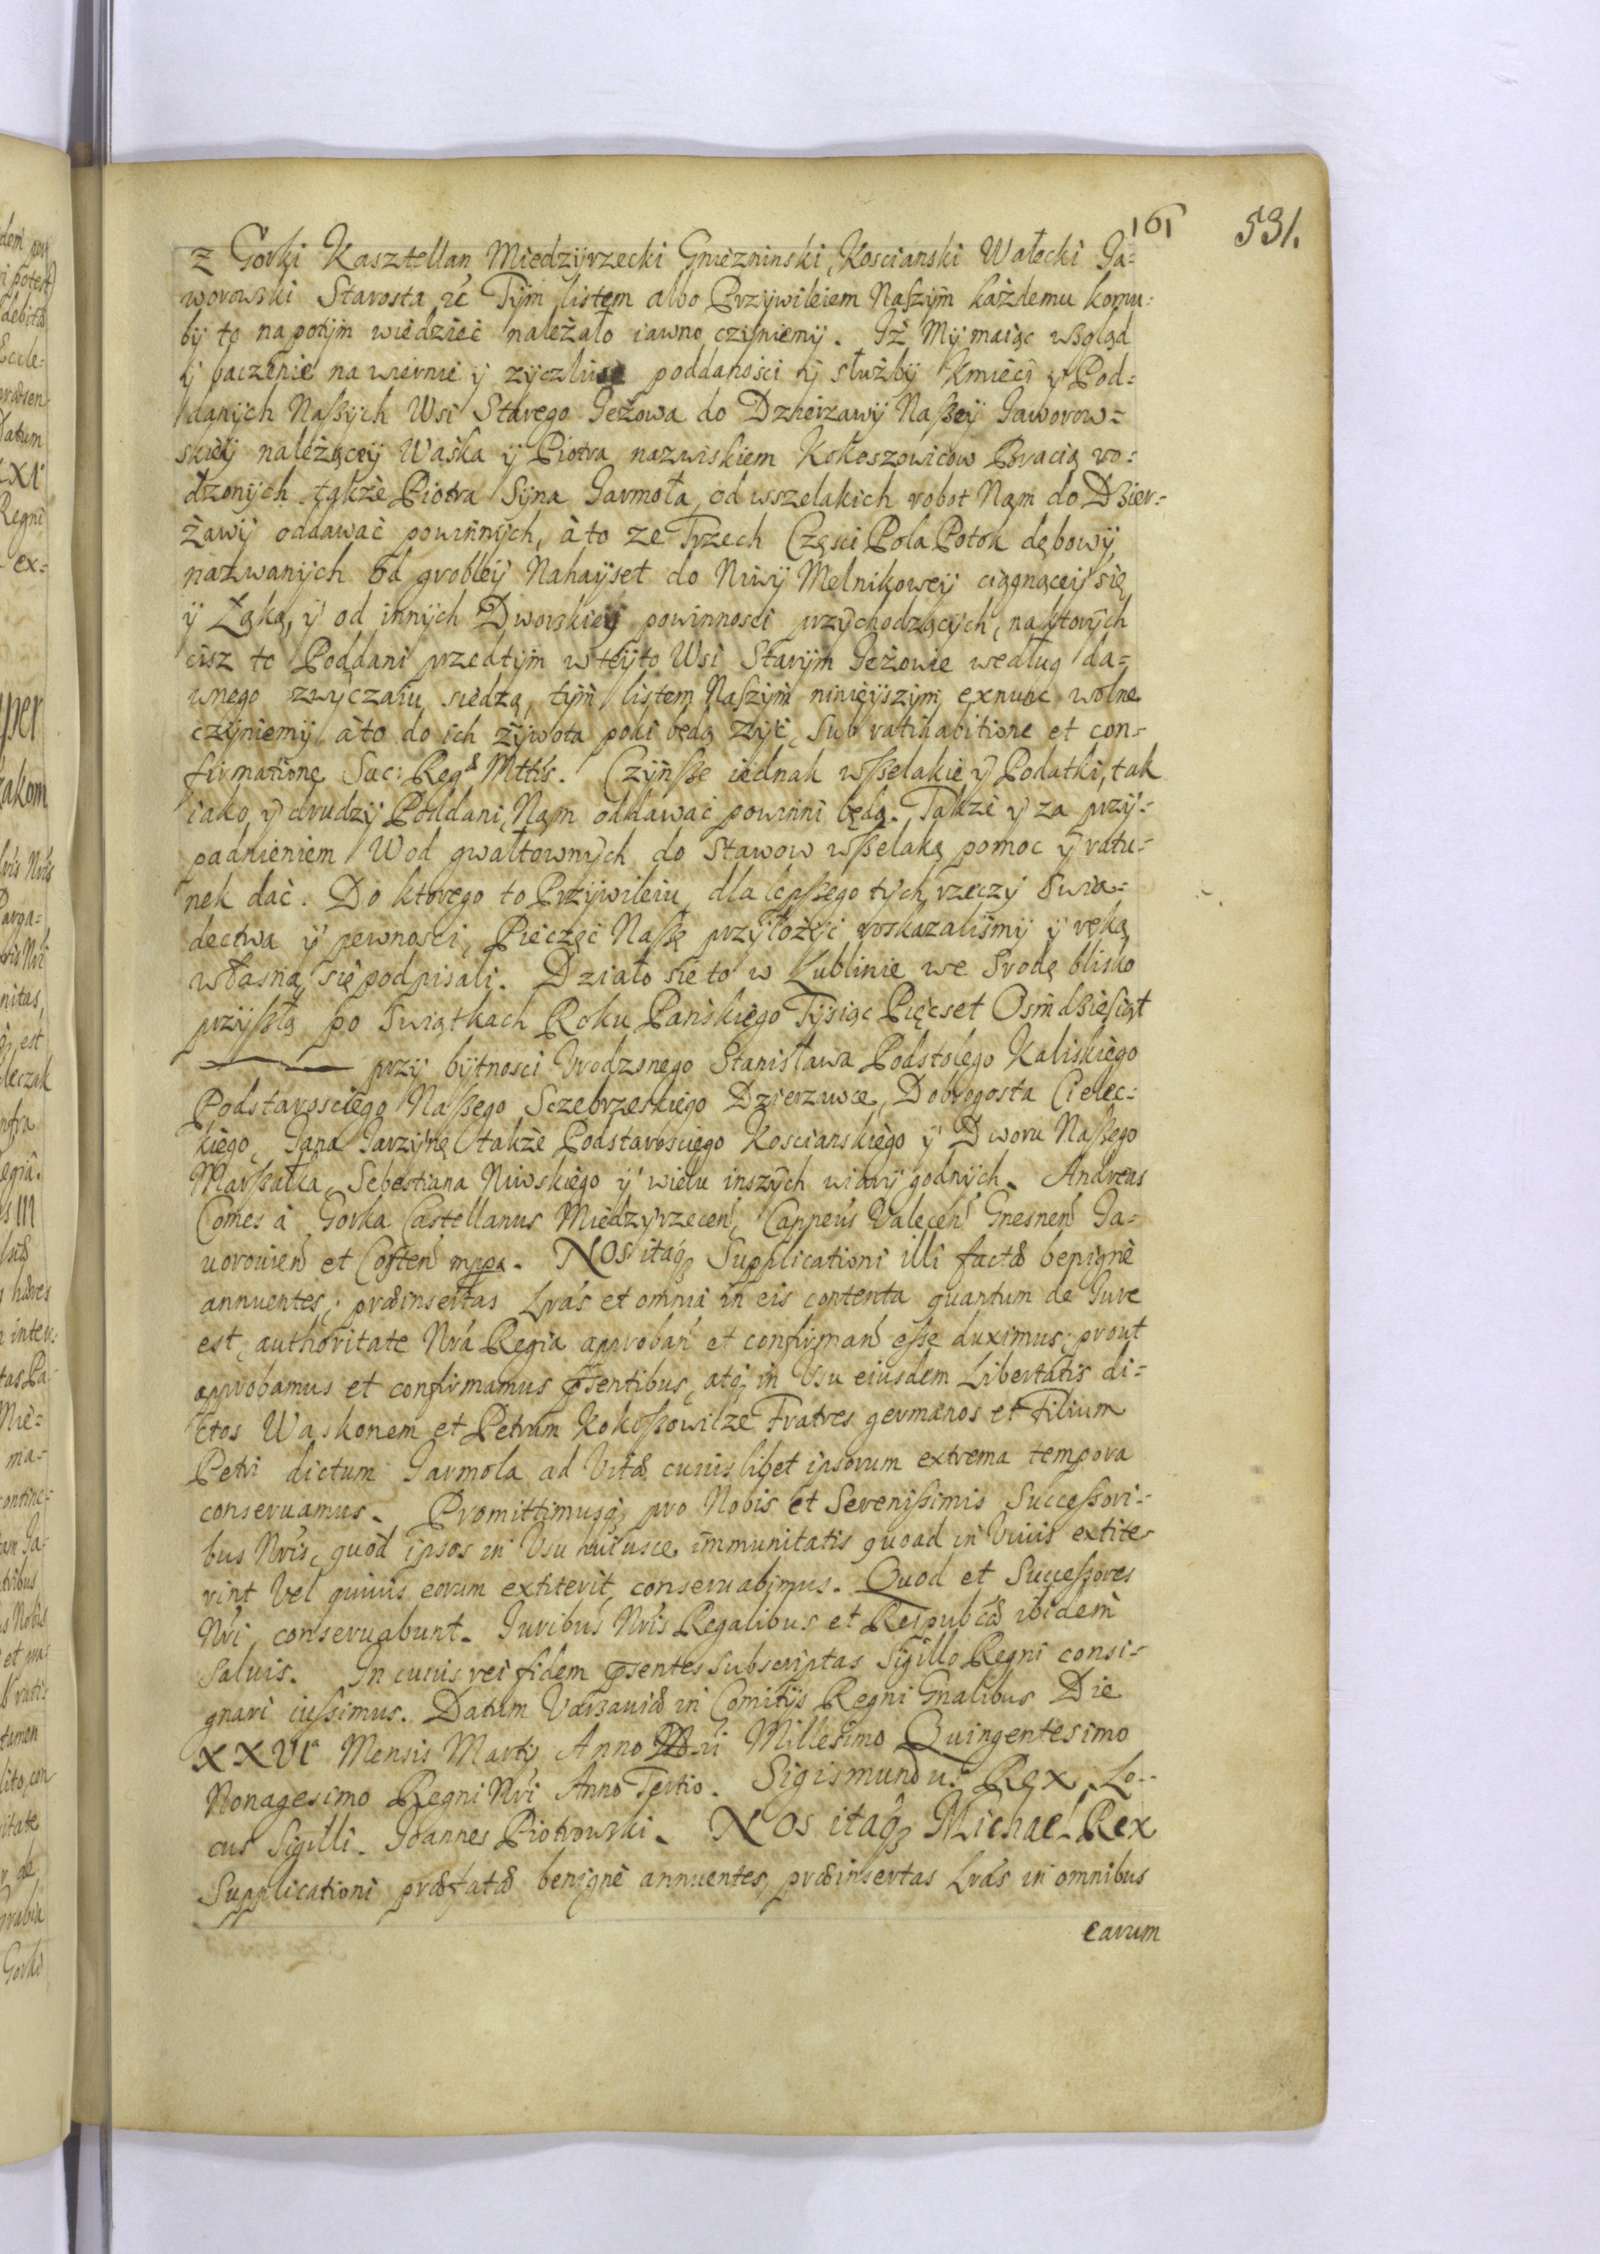 161 531.
z Gorki Kasztellan Miedzÿrzecki Gnieznınski, Koscianski Wałecki Ja-
worowski Starosta &c Tÿm listem albo Przÿwileiem Naszÿm każdemu komu-
bÿ to napotÿm wiedzieć należało iawno czÿniemÿ. Iż Mÿ maiąc wzgląd
ÿ baczenie na wiernie ÿ zyczliwe poddaności ÿ służbÿ Kmieci ÿ Pod-
danÿch Naßÿch Wsi Starego Jeżowa do Dzierżawÿ Naßeÿ Jaworow-
skieÿ należąceÿ Waśka ÿ Piotra nazwiskiem Kokeszowicow Bracią ro-
dzonÿch także Piotra Sÿna Jarmoła, od wszelakich robot Nam do Dzier-
żawÿ oddawać powinnÿch, à to ze Trzech Części Pola Potok dębowÿ
nazwanÿch od grobleÿ Nahaÿset do Niwÿ Melnikoweÿ ciągnąceÿ się
ÿ Łąką, ÿ od innÿch Dworskieÿ powinnosci przÿchodzącÿch, na ktorÿch
cisz to Poddani przedtÿm w teÿto Wsi Starÿm Jeżowie według da-
wnego zwÿczaiu siedzą, tÿm listem Naszÿm ninieÿszÿm exnunc wolne
czÿniemÿ à to do ich żÿwota poki będą żÿć, Sub ratihabitione et con-
firmatione Sac: Regæ Mttis. Czÿnsze iednak wßelakie ÿ Podatki, tak
iako ÿ drudzÿ Poddani, Nam oddawać powinni będą. Także ÿ za przÿ-
padnieniem Wod gwałtownÿch do Stawow wßelaką pomoc ÿ ratu-
nek dać. Do ktorego to Przÿwileiu, dla lepßego tÿch rzeczÿ Swia-
dectwa ÿ pewności, Pieczęć Naßę przÿłożÿć roskazaliśmÿ ÿ ręką
własną się podpisali. Działo sie to w Lublinie we Srodę blisko
przÿßłą po Swiątkach Roku Pańskiego Tÿsiąc Pięcset Osmdziesiąt
przÿ bÿtnosci Urodzonego Stanisława Podstolego Kaliskiego
Podstarosciego Naßego Sczebrzeskiego Dzierzawce, Dobrogosta Cielec-
kiego, Jana Jarzÿnę także Podstarosciego Kościanskiego ÿ Dworu Naßego
Marßałka, Sebestiana Niwskiego ÿ wielu inszÿch wiarÿ godnÿch. Andreas
Comes à Gorka Castellanus Miedzÿrzecen, Cappeus Valecen Gnesnen Ja-
uorouien et Costen mppa. NOS itaq; Supplicationi illi factæ benignè
annuentes, præinsertas Lras et omnia in eis contenta quantum de Jure
est, authoritate Nra Regia approban et confirman esse duximus; prout
approbamus et confirmamus psentibus, atq; in Usu eiusdem Libertatis di-
ctos Waskonem et Petrum Kokoßowicze Fratres germanos et Filium
Petri dictum Jarmola ad Vitæ cuiuslibet ipsorum extrema tempora
conseruamus. Promittimusq; pro Nobis et Serenissimis Successori-
bus Nris, quod ipsos in Usu huiusce immunitatis quoad in Viuis extite-
rint Vel quiuis eorum extiterit, conseruabimus. Quod et Successores
Nri conseruabunt. Juribus Nris Regalibus et Reipubcæ ibidem
Saluis. In cuius rei fidem psentes subscriptas Sigillo Regni consi-
gnari iussimus. Datum Varsauiæ in Comitÿs Regni Gnalibus Die
XXVIa Mensis Martÿ Anno Dni Millesimo Quingentesimo
Nonagesimo Regni Nri Anno Tertio. Sigismundus Rex. Lo-
cus Sigilli. Joannes Piotrowski. NOS itaq; Michael Rex
Supplicationi præfatæ benignè annuentes, præinsertas Lras in omnibus
earum